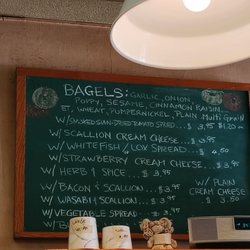 BAGELS: GARLIC, ONION,
POPPY, SESAME, CINNAMON RAISIN,
WHEAT, PUMPERNICKEL, PLAIN, Multi Grain
W/ SUN-DRIED TOMATO SPREAD... $3.95
W/ SCALLION CREAM CHEESE... $3.95
W/ WHITEFISH / LOX SPREAD... $4.50
W/ STRAWBERRY CREAM CHEESE... $3.95
W/ HERB & SPICE... $3.95
W/ BACON & SCALLION... $3.95
W/ WASABI & SCALLION... $3.95
W/ VEGETABLE SPREAD... $3.95
W/ PLAIN
CREAM CHEESE
$3.50